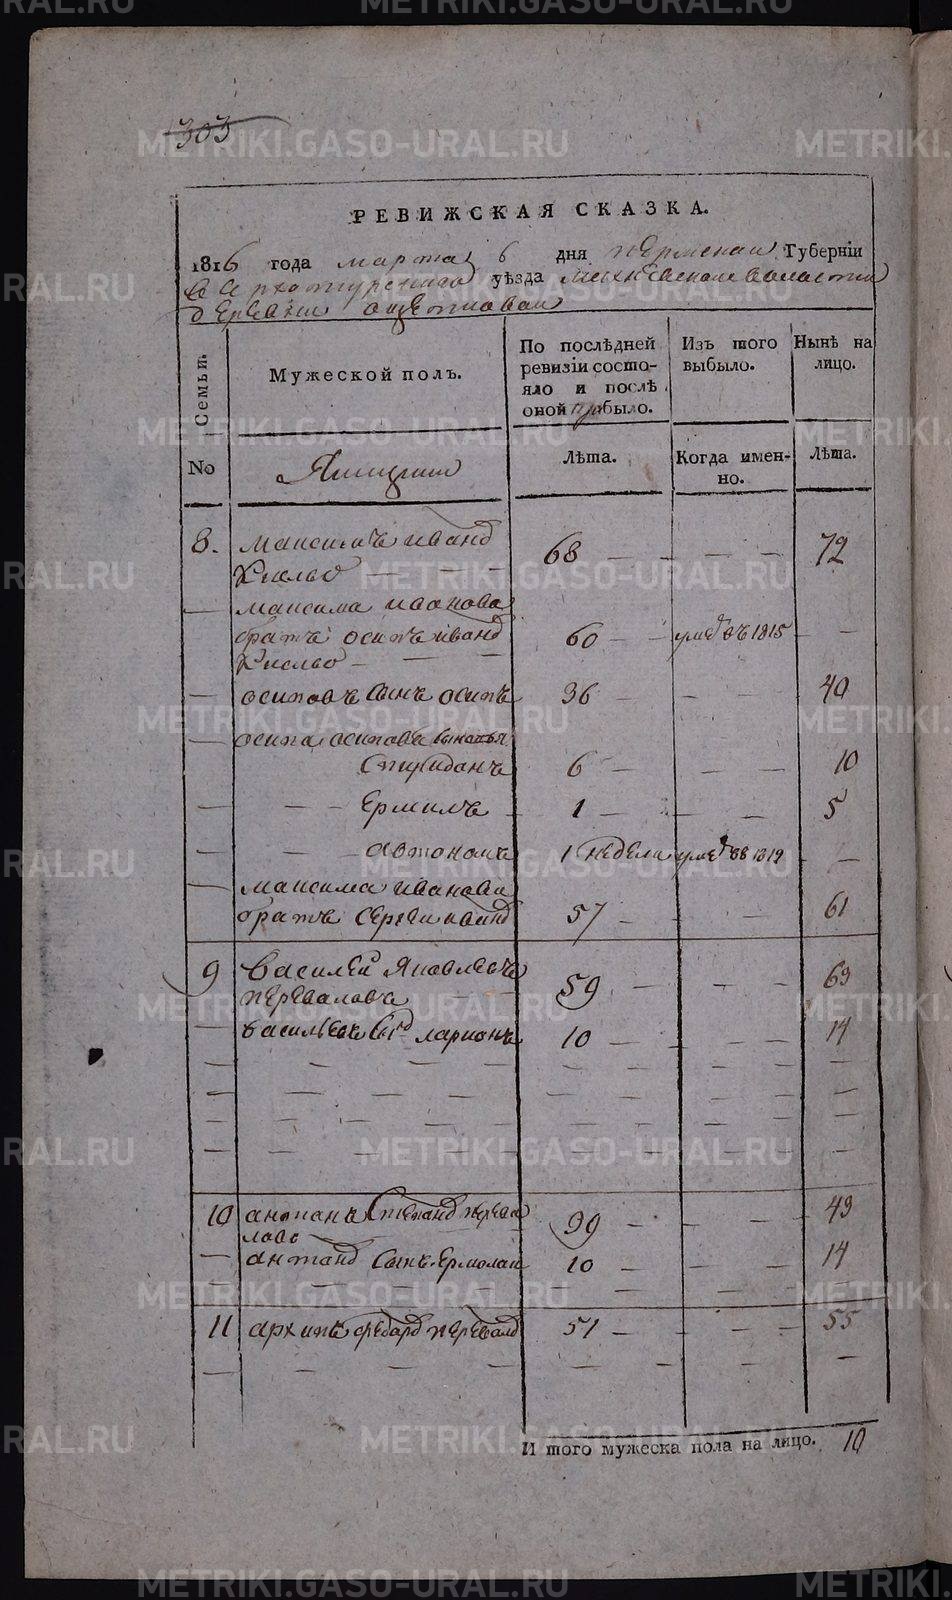 303
РЕВИЖСКАЯ СКАЗКА.
1816 года марта 6 дня пермскаи Губерніи
верхотурскаго уѣзда волости
деревни
Семьи.
Мужеской полъ.
По послѣдней ревизіи состо-яло и послѣ оной прибыло.
Изъ того выбыло.
Нынѣ на лицо.
No
Ямщики
Лѣта.
Когда имен-но.
Лѣта.
8. максимъ иванд 68 — — — 72
— максима иванова
братъ осипъ иванд 60 — умед въ 1815 — —
— осиповъ сынъ осипъ 36 — — — 40
— осипа осипова сыновья
Спиридонъ 6 — — — 10
— — — Ермилъ 1 — — — 5
— — — автономъ 1 недели умед въ 1812 — —
— максима иванова
братъ сергеи иванд 57 — — — 61
9 василей яковлевъ
перевалова 59 — — — 63
— васильевъ сынд ларионъ 10 — — — 14
10 антонъ степанд перева
лово 39 — — — 43
— антонд сынъ ермолаи 10 — — — 14
11 архипъ федорд перевалд 51 — — — 55
И того мужеска пола на лицо. 10
METRIKI.GASO-URAL.RU